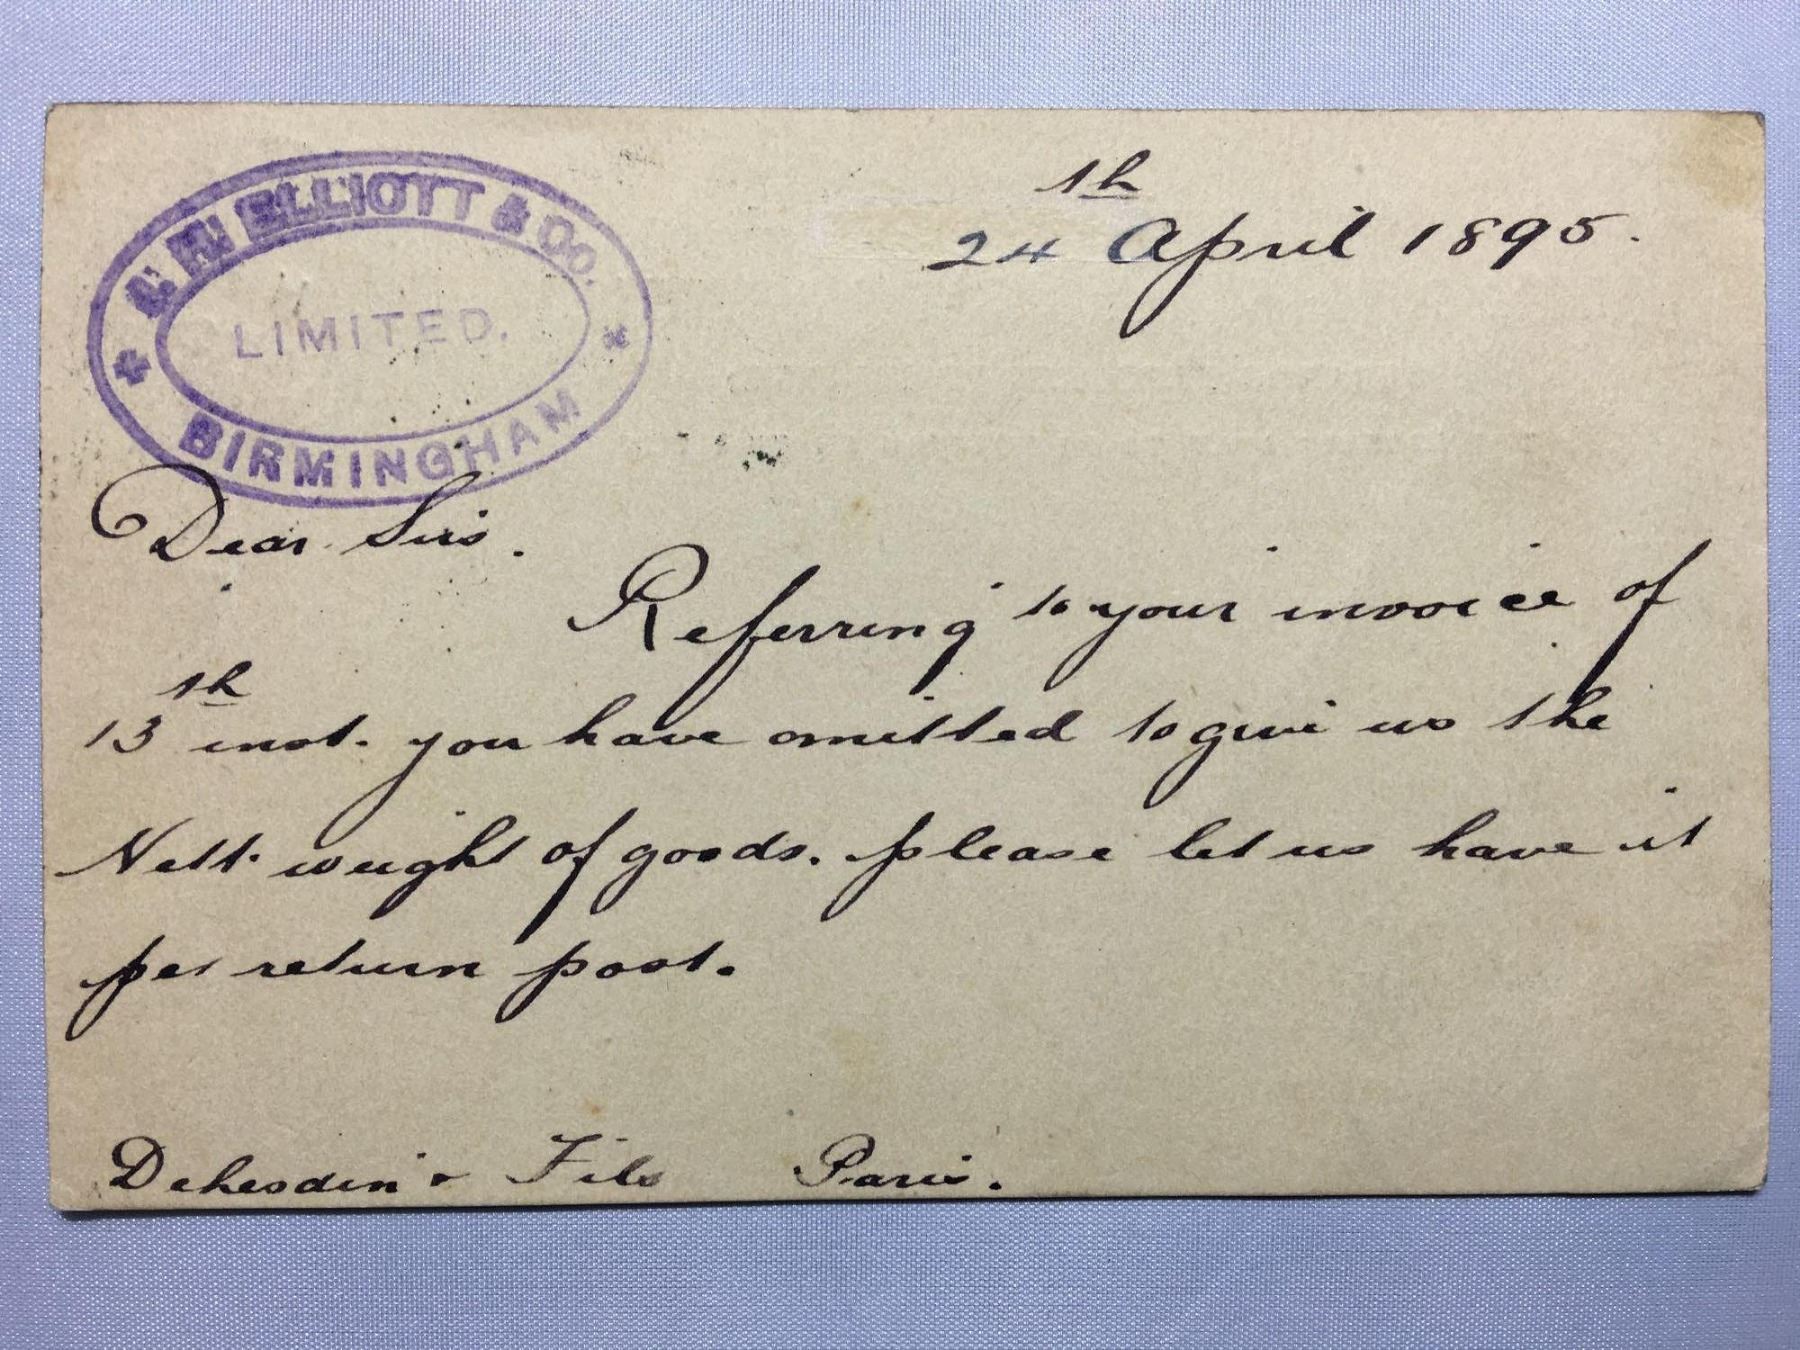 ELLIOTT & Co.
LIMITED.
BIRMINGHAM
24th April 1895.
Dear Sirs.
Referring to your invoice of
13th inst. you have omitted to give us the
Nett. weight of goods. please let us have it
per return post.
Dehesdin & Fils Paris.